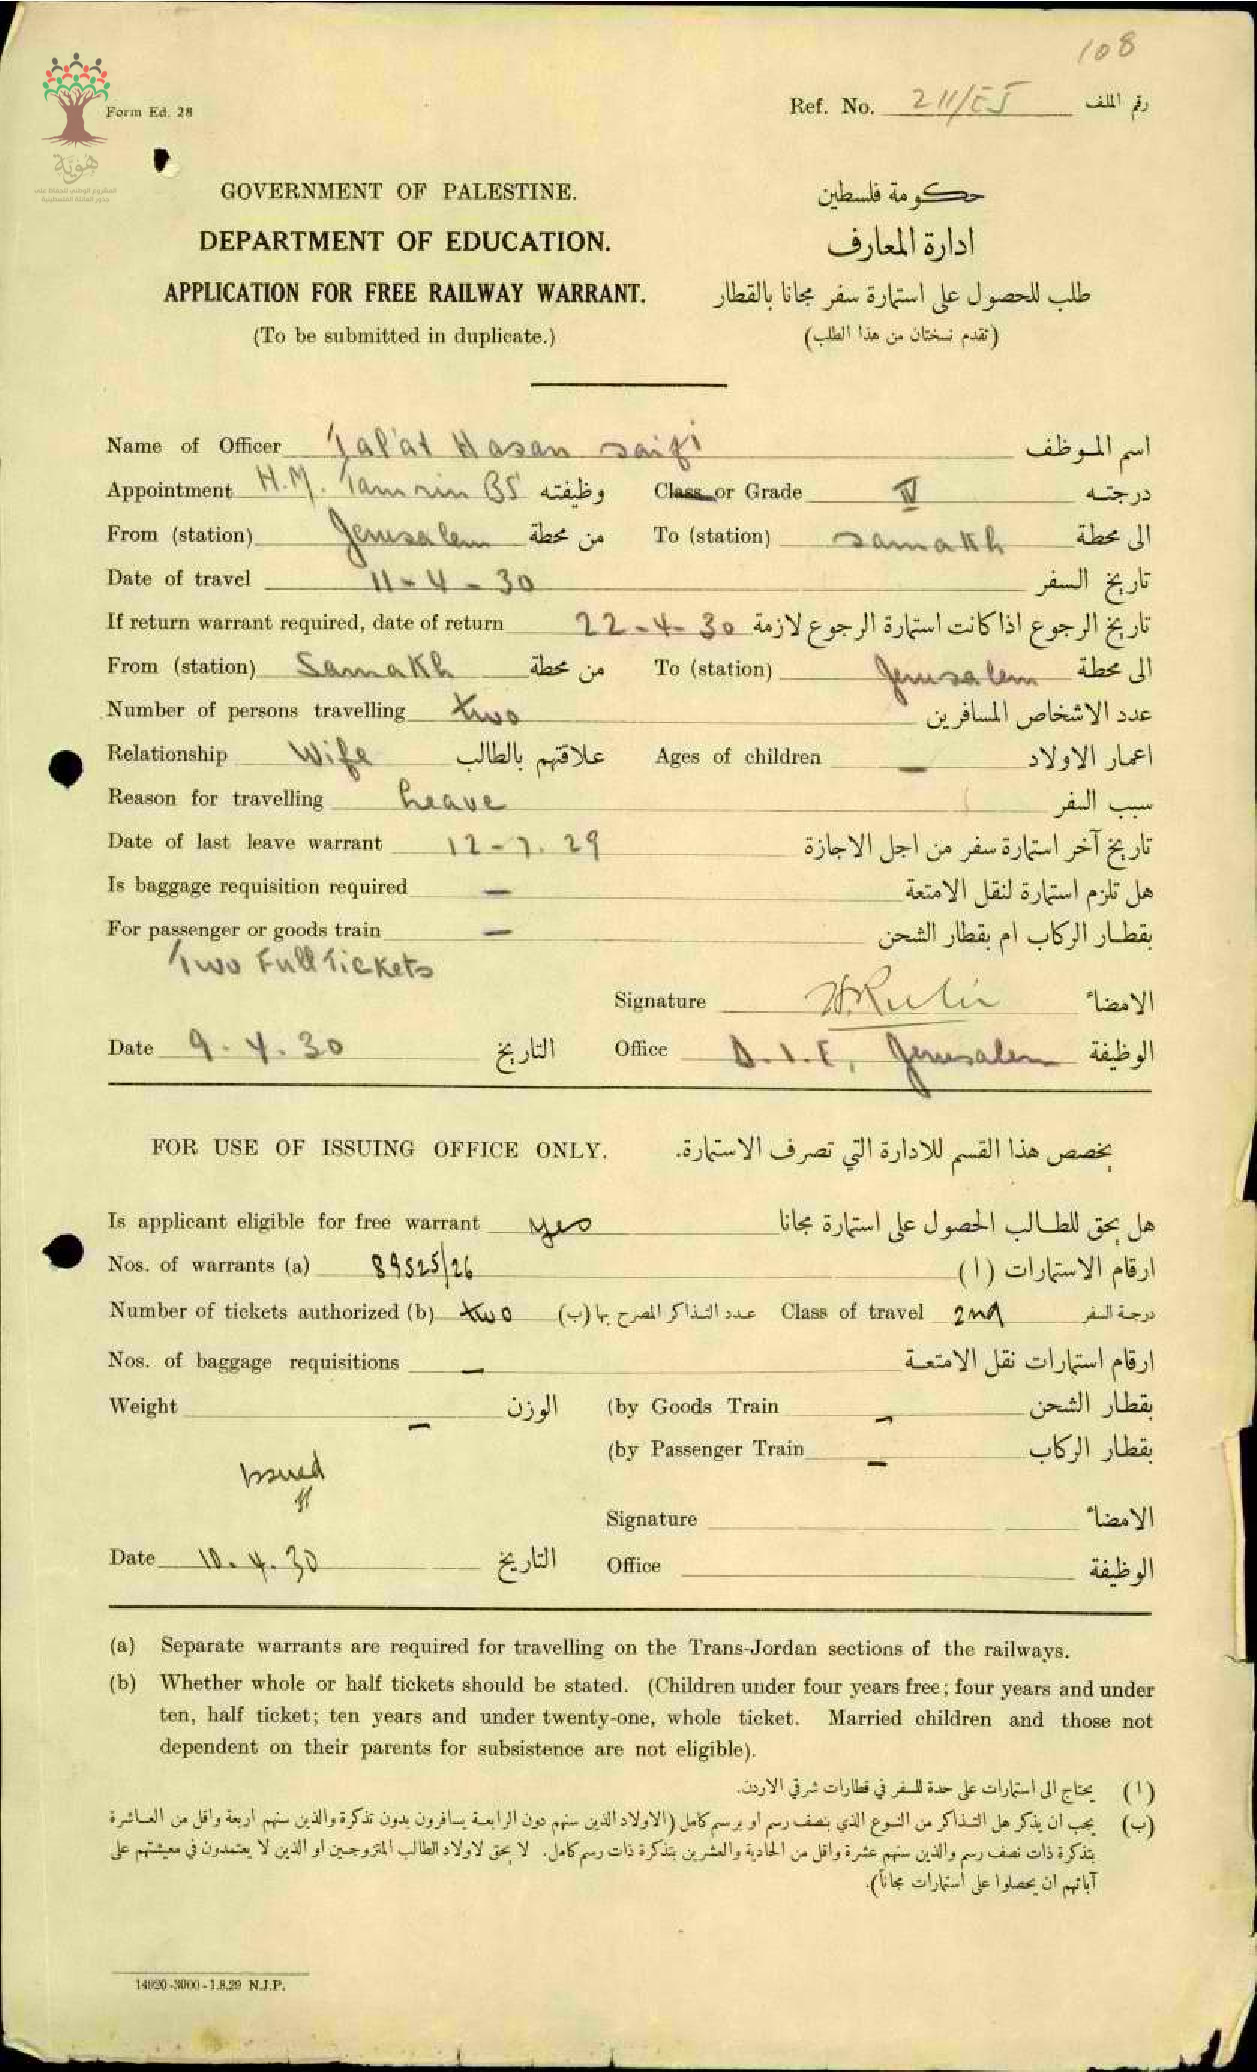 108
هوية
المشروع الوطني للحفاظ على
جذور العائلة الفلسطينية
Form Ed. 28
Ref. No. 211/E5 رقم الملف
GOVERNMENT OF PALESTINE. حكومة فلسطين
DEPARTMENT OF EDUCATION. ادارة المعارف
APPLICATION FOR FREE RAILWAY WARRANT. طلب للحصول على استمارة سفر مجانا بالقطار
(To be submitted in duplicate.) (تقدم نسختان من هذا الطلب)
Name of Officer Tal'at Hasan Saifi اسم الموظف
Appointment H.M. Tamrin BS وظيفته Class or Grade IV درجته
From (station) Jerusalem من محطة To (station) Samakh الى محطة
Date of travel 11-4-30 تاريخ السفر
If return warrant required, date of return 22-4-30 تاريخ الرجوع اذا كانت استمارة الرجوع لازمة
From (station) Samakh من محطة To (station) Jerusalem الى محطة
Number of persons travelling two عدد الاشخاص المسافرين
Relationship Wife علاقتهم بالطالب Ages of children — اعمار الاولاد
Reason for travelling Leave سبب السفر
Date of last leave warrant 12-7.29 تاريخ آخر استمارة سفر من اجل الاجازة
Is baggage requisition required — هل تلزم استمارة لنقل الامتعة
For passenger or goods train — بقطار الركاب ام بقطار الشحن
Two Full Tickets
Signature الامضاء
Date 9.4.30 التاريخ Office D.I.E, Jerusalem الوظيفة
FOR USE OF ISSUING OFFICE ONLY. يخصص هذا القسم للادارة التي تصرف الاستمارة.
Is applicant eligible for free warrant yes هل يحق للطالب الحصول على استمارة مجانا
Nos. of warrants (a) 89525/26 ارقام الاستمارات (ا)
Number of tickets authorized (b) two عدد التذاكر المصرح بها (ب) Class of travel 2nd درجة السفر
Nos. of baggage requisitions — ارقام استمارات نقل الامتعة
Weight — الوزن (by Goods Train — بقطار الشحن
(by Passenger Train — بقطار الركاب
Issued
Signature الامضاء
Date 10.4.30 التاريخ Office الوظيفة
(a) Separate warrants are required for travelling on the Trans-Jordan sections of the railways.
(b) Whether whole or half tickets should be stated. (Children under four years free; four years and under
ten, half ticket; ten years and under twenty-one, whole ticket. Married children and those not
dependent on their parents for subsistence are not eligible).
(ا) يحتاج الى استمارات على حدة للسفر في قطارات شرقي الاردن.
(ب) يجب ان يذكر هل التذاكر من النوع الذي بنصف رسم او برسم كامل (الاولاد الذين سنهم دون الرابعة يسافرون بدون تذكرة والذين سنهم اربعة واقل من العاشرة
بتذكرة ذات نصف رسم والذين سنهم عشرة واقل من الحادية والعشرين بتذكرة ذات رسم كامل. لا يحق لاولاد الطالب المتزوجين او الذين لا يعتمدون في معيشتهم على
آبائهم ان يحصلوا على استمارات مجاناً).
14920-3000-1.8.29 N.J.P.